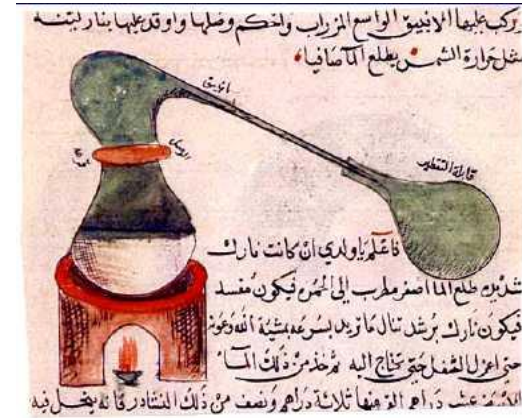 ويركب عليها الانبيق الواسع المزراب ولنحكم وصلها واوقد عليها بنار لينه
مثل حرارة الشمس يطلع الما صافيا
انبيق
قابلة التقطير
فاعلم يا ولدي ان كانت نارك
شديده طلع الما اصفر مطرب إلى الحمره فيكون مفسد
فيكون نارك برشد تنال ما تريد بسرعه بمشية الله وعونه
حتى اعزل الثفل حتى تحتاج اليه ثم خذ من ذلك الما
عشر دراهم الق فيها ثلاثة دراهم ونصف من ذلك النشادر فانه ينحل فيه